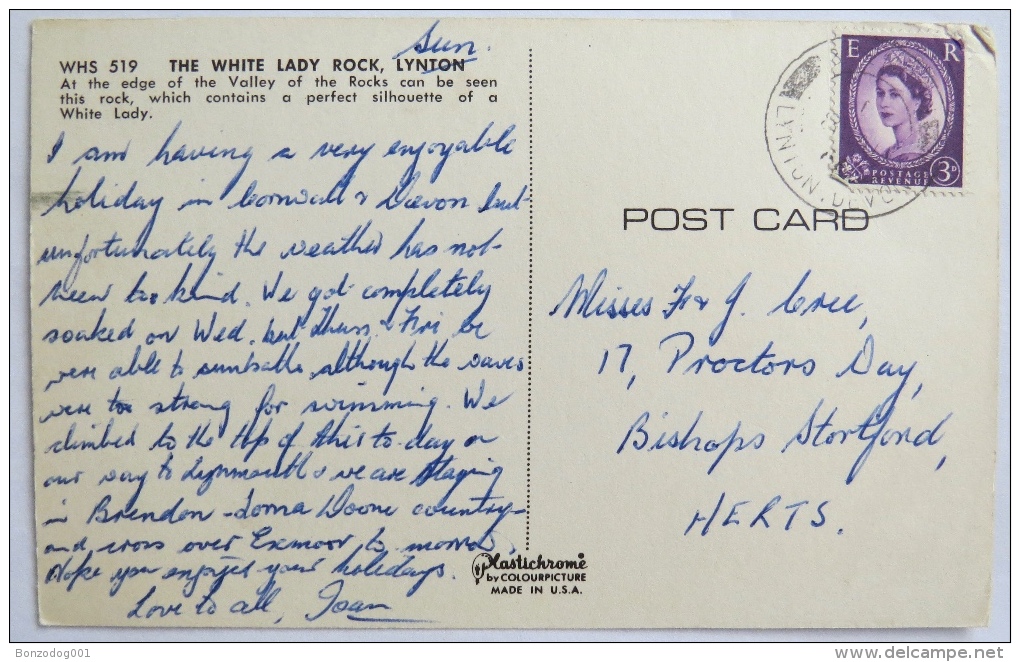 Sun.
WHS 519 THE WHITE LADY ROCK, LYNTON
At the edge of the Valley of the Rocks can be seen
this rock, which contains a perfect silhouette of a
White Lady.
I am having a very enjoyable
holiday in Cornwall & Devon but
unfortunately the weather has not
been too kind. We got completely
soaked on Wed. but Thurs. & Fri we
were able to sunbathe, although the waves
were too strong for swimming. We
climbed to the top of this to-day on
our way to Lynmouth & we are staying
in Brendon - Lorna Doone country -
and cross over Exmoor to-morrow.
Hope you enjoyed your holidays.
Love to all, Joan
E R
POSTAGE
REVENUE
3D
LYNTON DEVON
POST CARD
Misses F & J. Cree,
17, Proctors Day,
Bishops Stortford,
HERTS.
Plastichrome
by COLOURPICTURE
MADE IN U.S.A.
Bonzodog001
www.delcampe.net